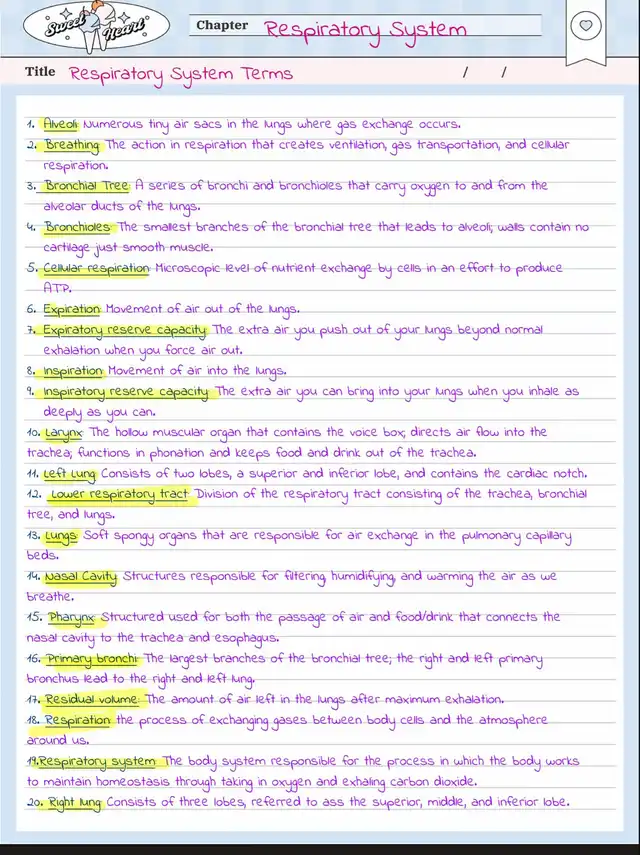 Sweet Heart
Chapter Respiratory System
Title Respiratory System Terms / /
1. Alveoli: Numerous tiny air sacs in the lungs where gas exchange occurs.
2. Breathing: The action in respiration that creates ventilation, gas transportation, and cellular
respiration.
3. Bronchial Tree: A series of bronchi and bronchioles that carry oxygen to and from the
alveolar ducts of the lungs.
4. Bronchioles: The smallest branches of the bronchial tree that leads to alveoli; walls contain no
cartilage just smooth muscle.
5. Cellular respiration: Microscopic level of nutrient exchange by cells in an effort to produce
ATP.
6. Expiration: Movement of air out of the lungs.
7. Expiratory reserve capacity: The extra air you push out of your lungs beyond normal
exhalation when you force air out.
8. Inspiration: Movement of air into the lungs.
9. Inspiratory reserve capacity: The extra air you can bring into your lungs when you inhale as
deeply as you can.
10. Larynx: The hollow muscular organ that contains the voice box; directs air flow into the
trachea; functions in phonation and keeps food and drink out of the trachea.
11. Left Lung: Consists of two lobes, a superior and inferior lobe, and contains the cardiac notch.
12. Lower respiratory tract: Division of the respiratory tract consisting of the trachea, bronchial
tree, and lungs.
13. Lungs: Soft spongy organs that are responsible for air exchange in the pulmonary capillary
beds.
14. Nasal Cavity: Structures responsible for filtering, humidifying, and warming the air as we
breathe.
15. Pharynx: Structured used for both the passage of air and food/drink that connects the
nasal cavity to the trachea and esophagus.
16. Primary bronchi: The largest branches of the bronchial tree; the right and left primary
bronchus lead to the right and left lung.
17. Residual volume: The amount of air left in the lungs after maximum exhalation.
18. Respiration: the process of exchanging gases between body cells and the atmosphere
around us.
19.Respiratory system: The body system responsible for the process in which the body works
to maintain homeostasis through taking in oxygen and exhaling carbon dioxide.
20. Right lung: Consists of three lobes, referred to ass the superior, middle, and inferior lobe.